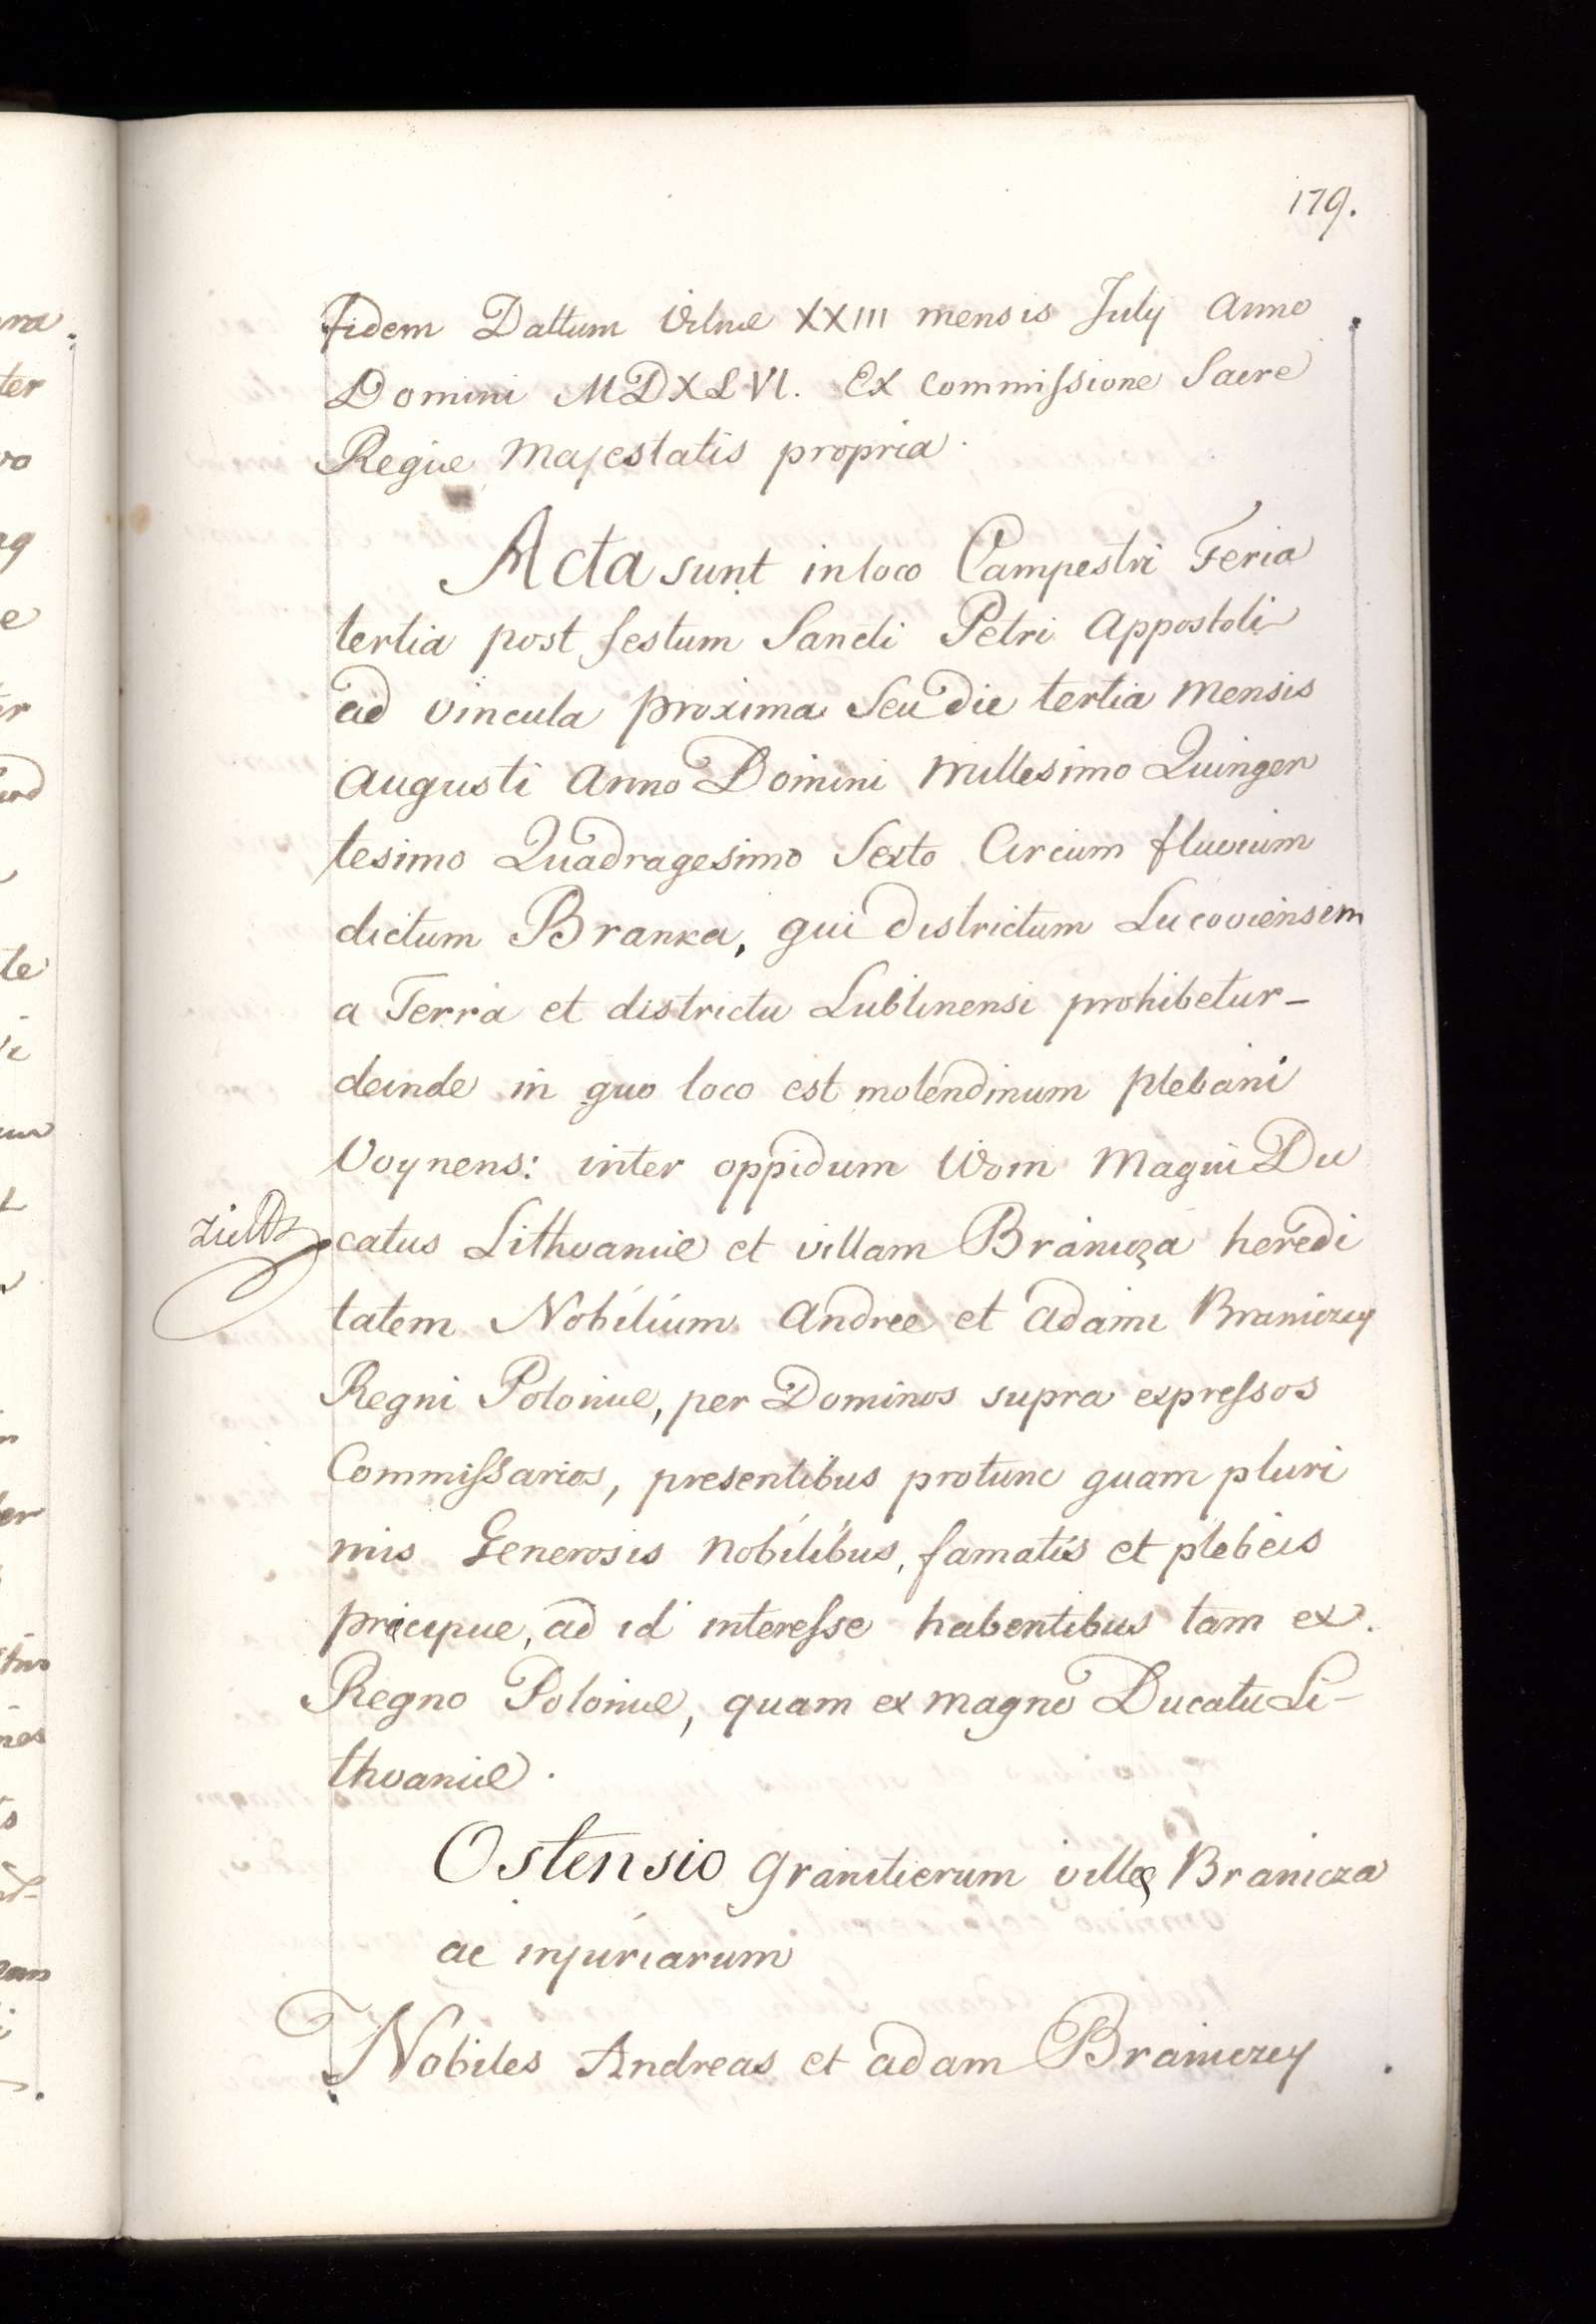 179.
fidem Dattum Vilnæ XXIII mensis July Anno
Domini MDXLVI. Ex Commissione Sacre
Regiæ Majestatis propria.
Acta sunt in loco Campestri Feria
tertia post festum Sancti Petri Appostoli
ad vincula proxima Seu die tertia Mensis
Augusti Anno Domini Millesimo Quingen
tesimo Quadragesimo Sexto Circum fluvium
dictum Branka, qui districtum Lucoviensem
a Terra et districtu Lublinensi prohibetur_
deinde in quo loco est molendinum plebani
Voynens: inter oppidum Woin Magni Du
catus Lithvaniæ et villam Branicza heredi
tatem Nobilium Andree et Adami Braniczey
Regni Poloniæ, per Dominos supra expressos
Commissarios, presentibus protunc quam pluri
mis Generosis Nobilibus, famatis et plebeis
precipue, ad id interesse habentibus tam ex
Regno Poloniæ, quam ex magno Ducatu Li-
thvaniæ.
Ostensio granitierum ville Branicza
ac injuriarum
Nobiles Andreas et Adam Braniczey